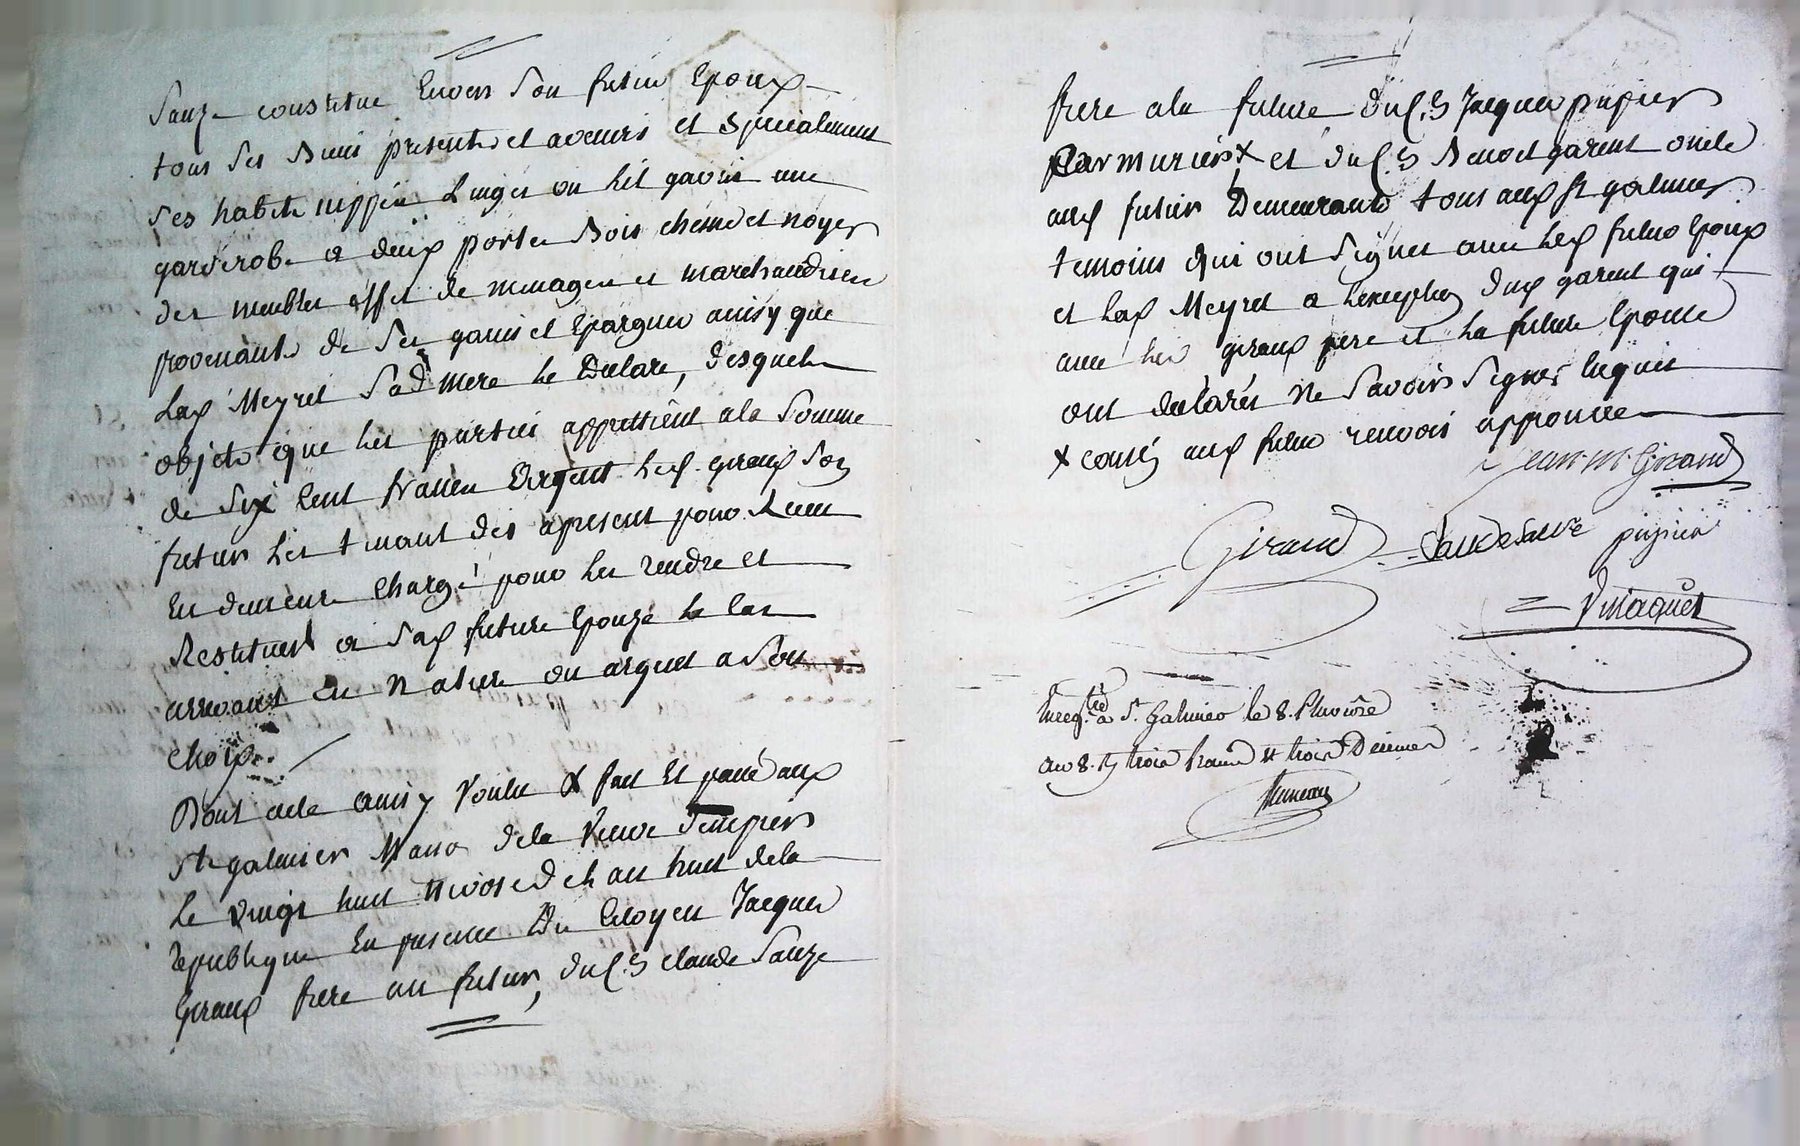 Sauze constitue Envers Son futur Epoux
tous Ses Biens presents et avenirs et specialement
Ses habits nippes Linges un lit garni une
garderobe a deux portes Bois chene et noyer
des meubles effet de menages et marchandises
provenants de Ses gains et Epargnes ainsy que
Lad. Meyret Sad. mere le Declare, desquels
objets que les parties apprettient a la Somme
de Six Cent francs Argent led. giraud Son
futur les tenant des apresent pour Reçu
En demeure Chargé pour les rendre et
Restituer a Sad. future Epouze le Cas
arrivant en Nature ou argent a Son
Choix.
Dont acte ainsy Voulu fait Et passé aud.
St galmier Maison de la Veuve
le vingt huit Nivose d. an huit de la
republique En presence Du Citoyen Jacques
Giraud frere au futur, du C.en Claude Sauze
frere a la future du C.en Jacques pupier
parmurier x et du C.en Benoit garent oncle
aud. futur Demeurants tous aud. St galmier
temoins qui ont Signes avec Led. futur Epoux
et Lad. Meyret a L'exception dud. garent qui
avec les giraud pere et la future Epouse
ont declarés Ne Savoir Signer
x aud. futur renvois approuvé
Jean M. Giraud
Giraud Claude Sauze pupier
Enreg.tré a St. Galmier le 8. Pluviôse
an 8. R trois francs trois Decimes